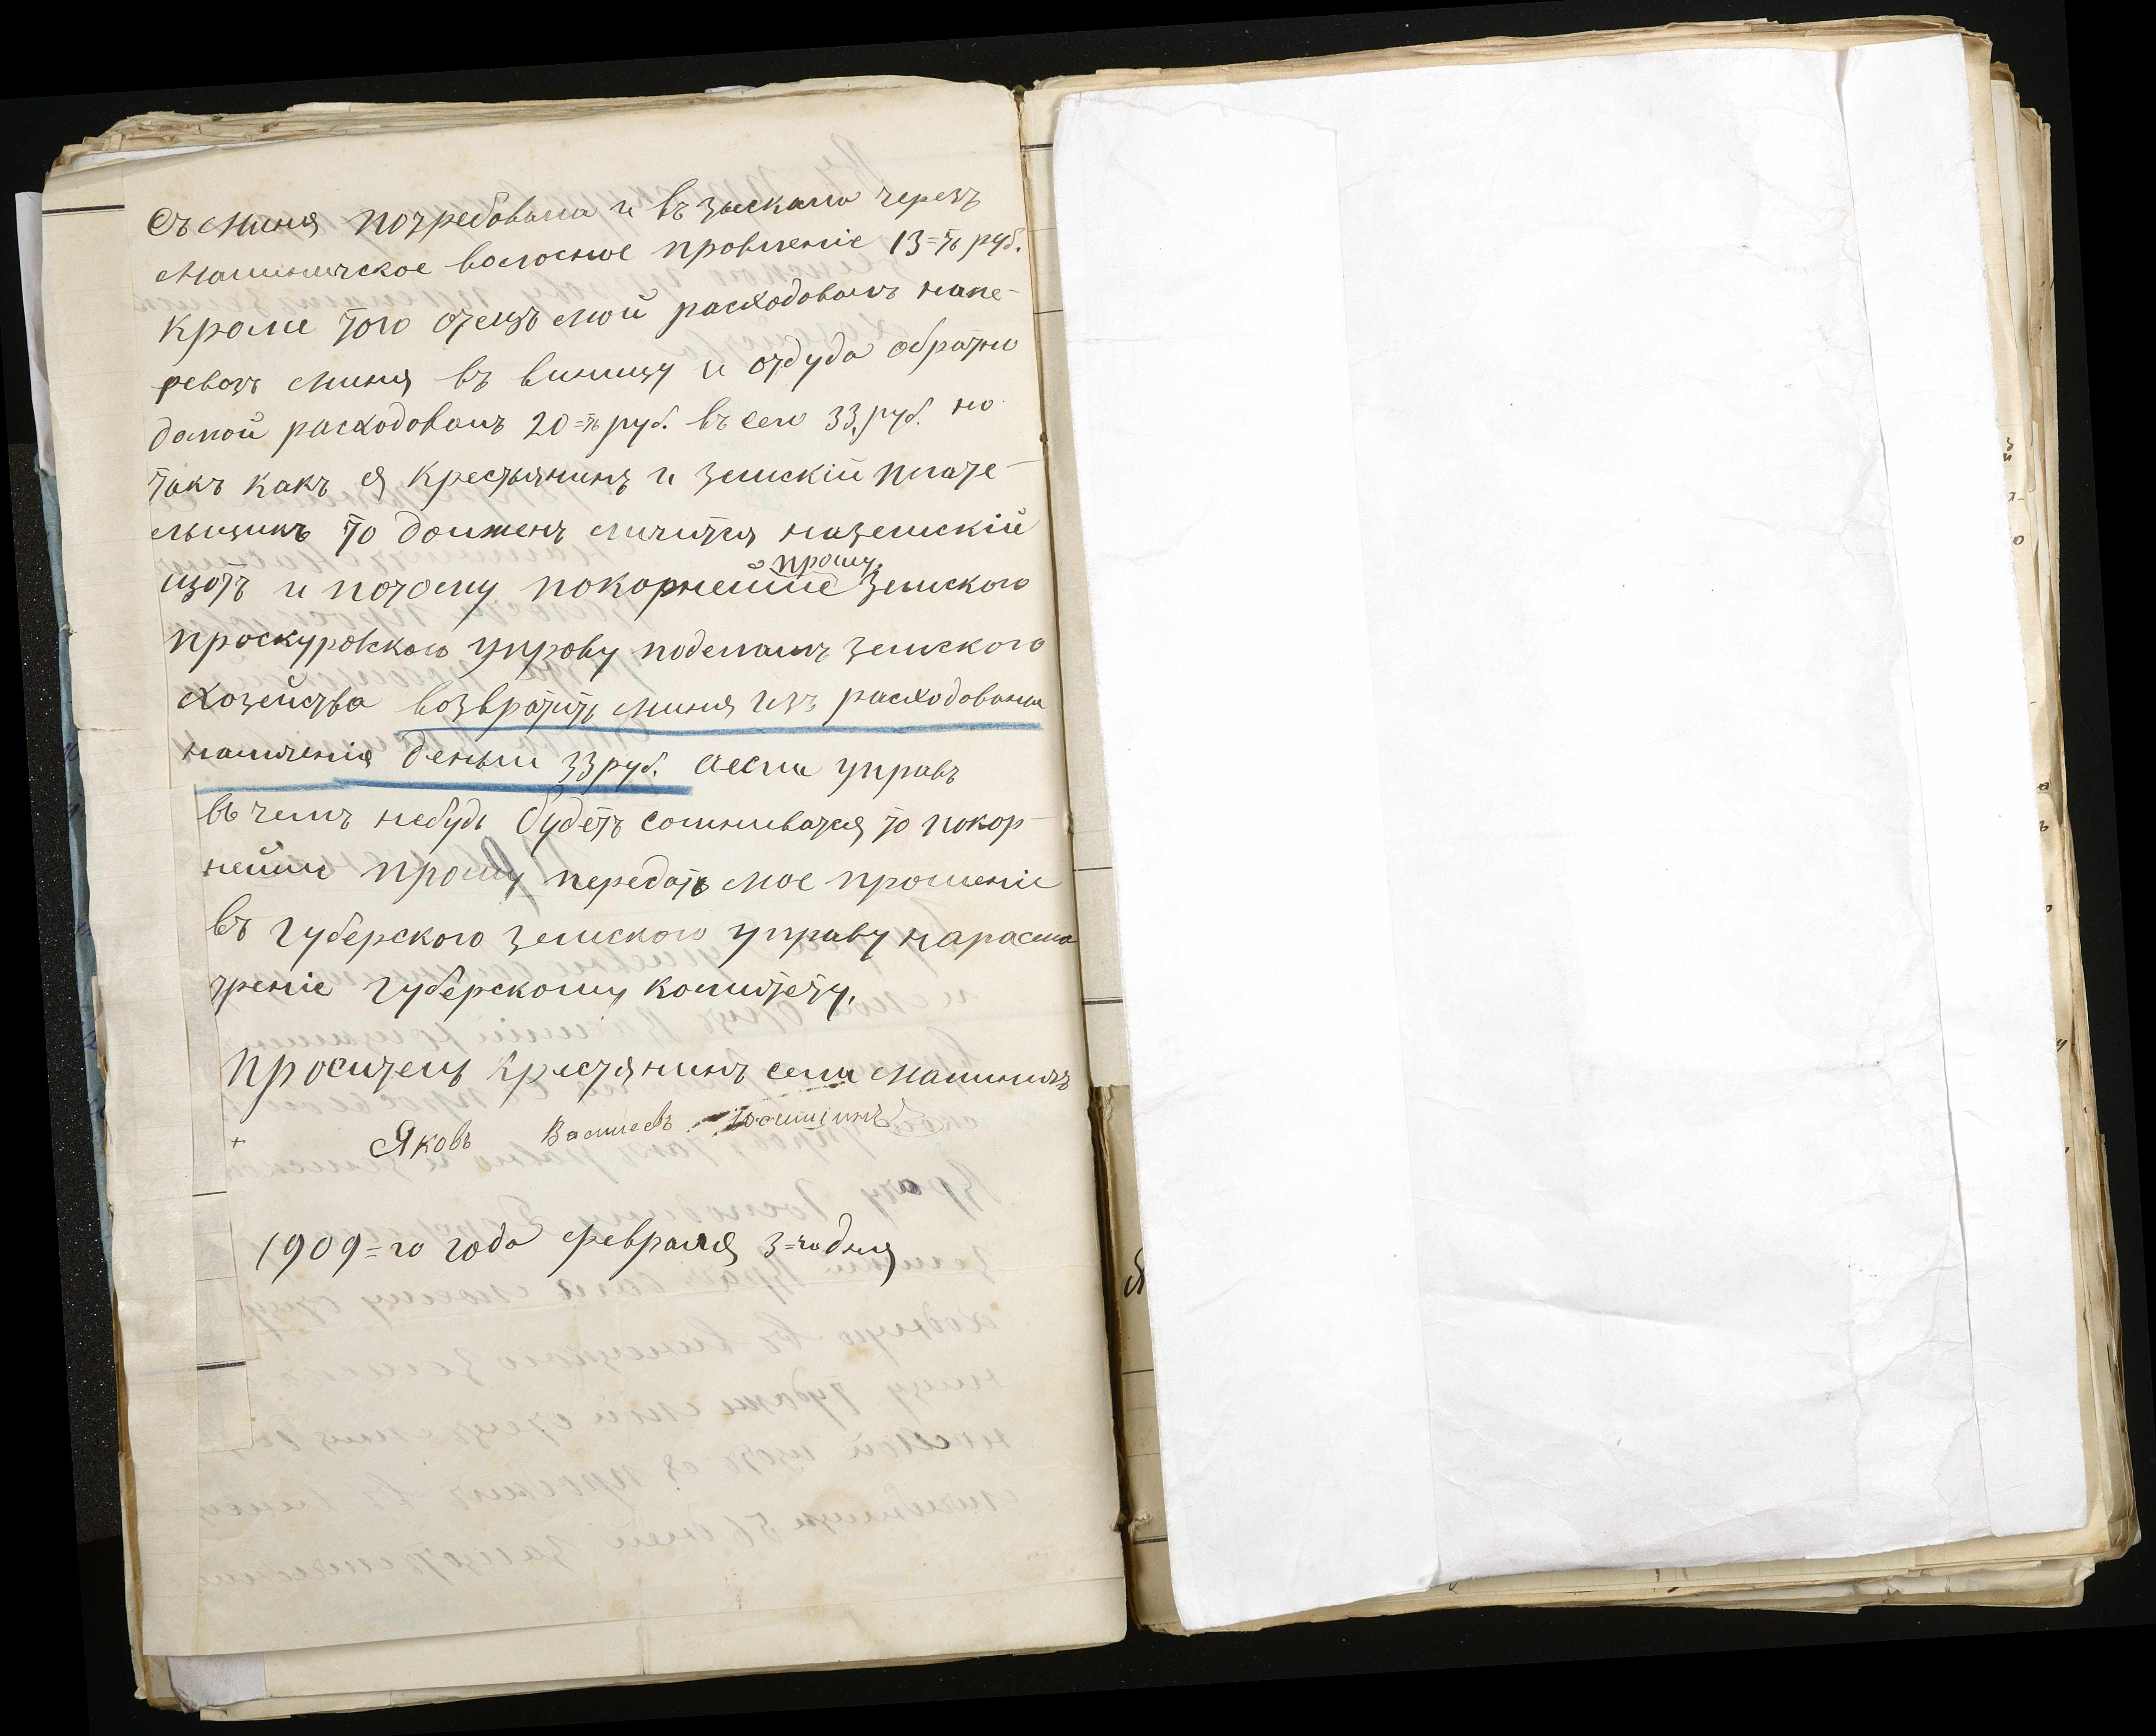 Съ миня потребовали и въ зыскали через
Малиничское волосное провление 13=ть руб.
Кроме того отецъ мой расходовалъ напе-
ревозъ миня въ виницу и отдуда обратно
домой расходовалъ 20=ть руб. въ сего 33, руб. но
такъ какъ я Крестьянинъ и земскій плате-
льщикъ то должен личится наземскій
щотъ и потому покорнейше прошу Земского
проскуровского управу поделамъ земского
хозейства возвратить миня изъ расходовани
наличения деньги 33 руб. аесли управъ
въ чемъ небудь будетъ сомниватся то покор-
нейши прошу передать мое прошеніе
въ Губерского земского управу нарасмо
трение Губерскому комитету.
Проситель Крестянинъ села Малиничъ
+ Яковъ Василевъ
1909=го года февраля 3=го дня